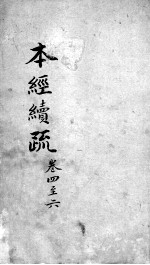 本經續疏
卷四至六